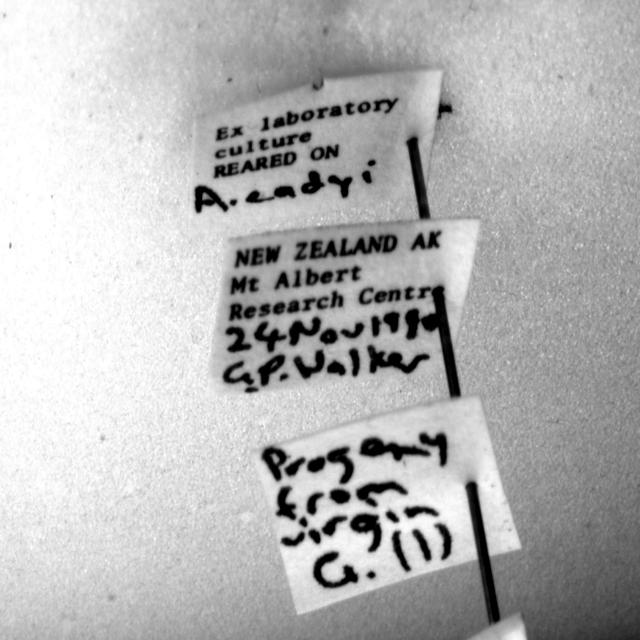 Ex laboratory
culture
REARED ON
A. eadyi
NEW ZEALAND AK
Mt Albert
Research Centre
24 Nov 1990
G.P. Walker
Progeny
from
virgin
G. (1)